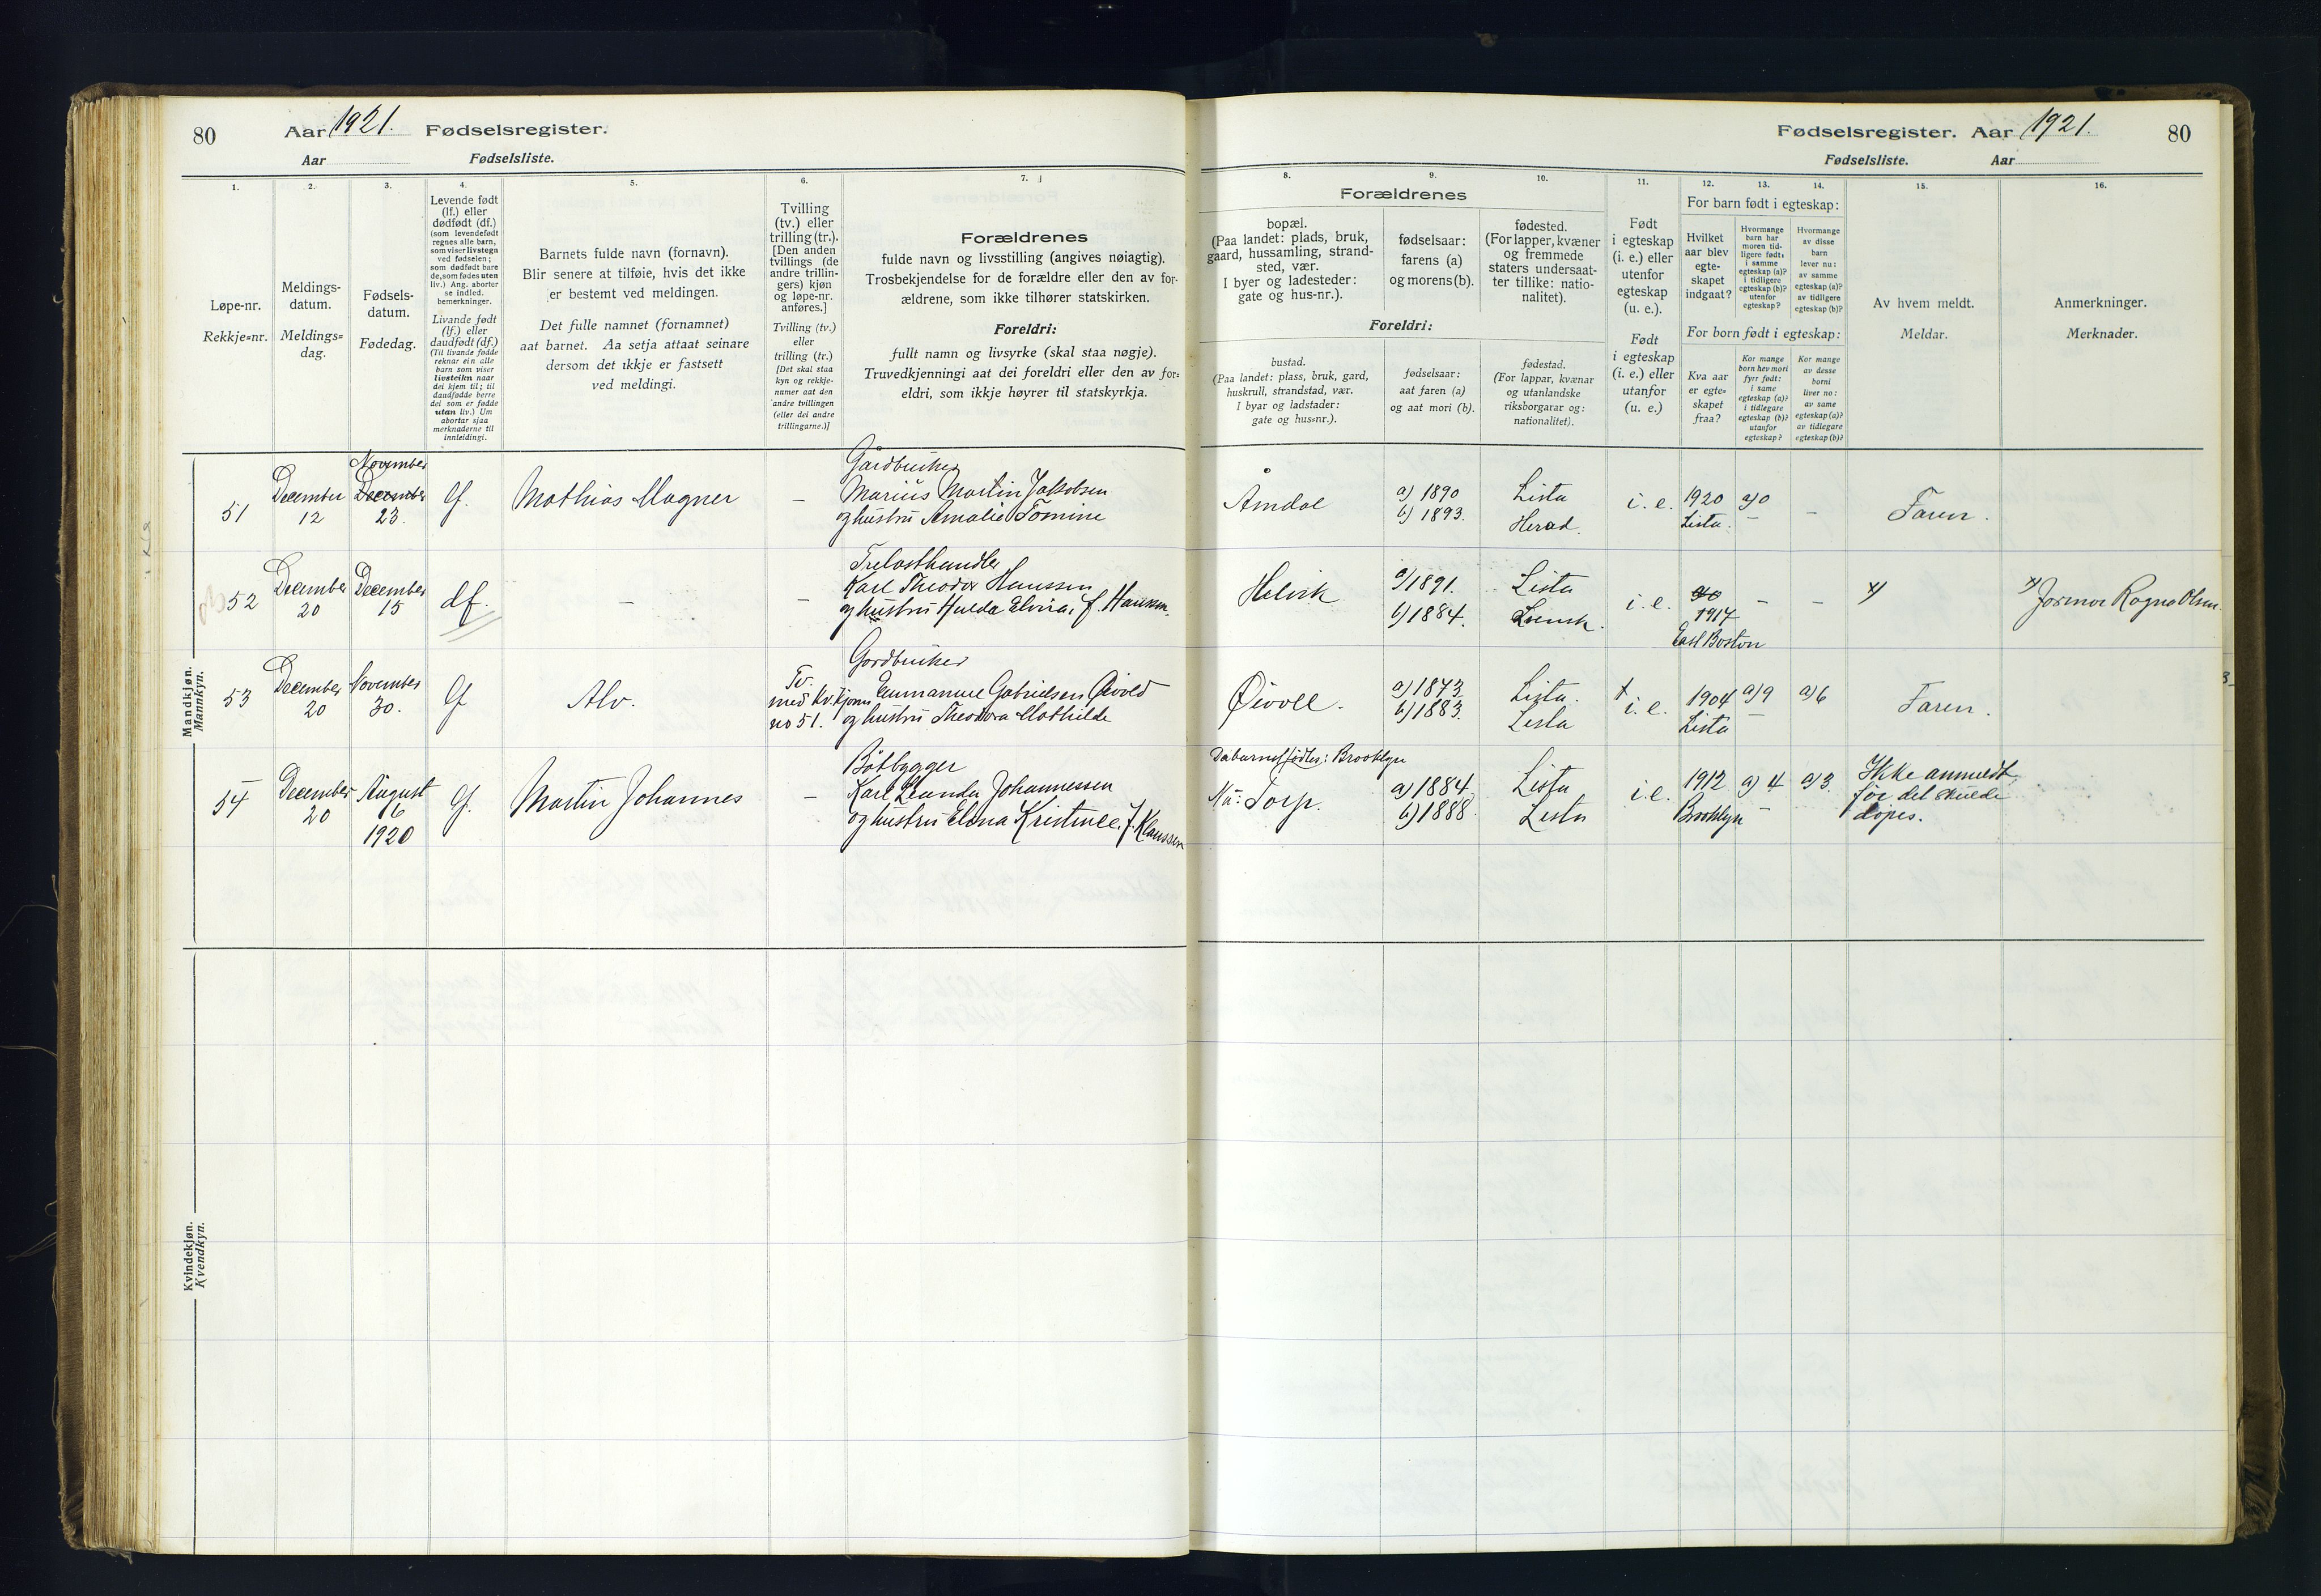 80
Aar 1921. Fødselsregister.
Aar Fødselsliste.
Fødselsregister. Aar 1921.
80
Fødselsliste. Aar
1.
Løpe-nr.
Rekkje=nr.
2.
Meldings-
datum.
Meldings=
dag.
3.
Fødsels-
datum.
Fødedag.
4.
Levende født
(lf.) eller
dødfødt (df.)
(som levendefødt
regnes alle barn,
som viser livstegn
ved fødselen;
som dødfødt bare
de, som fødes uten
liv.) Ang. aborter
se indled.
bemerkninger.
Livande født
(lf.) eller
daudfødt (df.)
(Til livande fødde
reknar ein alle
barn som viser
livsteikn naar
dei kjem til; til
daudfødde berre
dei som er fødde
utan liv.) Um
abortar sjaa
merknaderne til
innleidingi.
5.
Barnets fulde navn (fornavn).
Blir senere at tilføie, hvis det ikke
er bestemt ved meldingen.
Det fulle namnet (fornamnet)
aat barnet. Aa setja attaat seinare
dersom det ikkje er fastsett
ved meldingi.
6.
Tvilling
(tv.) eller
trilling (tr.).
[Den anden
tvillings (de
andre trillin-
gers) kjøn
og løpe-nr.
anføres.]
Tvilling (tv.)
eller
trilling (tr.)
[Det skal staa
kyn og rekkje-
numer aat den
andre tvillingen
(eller dei andre
trillingarne.)]
7.
Forældrenes
fulde navn og livsstilling (angives nøiagtig).
Trosbekjendelse for de forældre eller den av for-
ældrene, som ikke tilhører statskirken.
Foreldri:
fullt namn og livsyrke (skal staa nøgje).
Truvedkjenningi aat dei foreldri eller den av for=
eldri, som ikkje høyrer til statskyrkja.
Forældrenes
8.
bopæl.
(Paa landet: plads, bruk,
gaard, hussamling, strand-
sted, vær.
I byer og ladesteder:
gate og hus-nr.).
9.
fødselsaar:
farens (a)
og morens (b).
10.
fødested.
(For lapper, kvæner
og fremmede
staters undersaat-
ter tillike: natio-
nalitet).
Foreldri:
bustad.
(Paa landet: plass, bruk, gard,
huskrull, strandstad, vær.
I byar og ladstader:
gate og hus=nr.).
fødselsaar:
aat faren (a)
og aat mori (b).
fødestad.
(For lappar, kvænar
og utanlandske
riksborgarar og:
nationalitet).
11.
Født
i egteskap
(i. e.) eller
utenfor
egteskap
(u. e.).
Født
i egteskap
(i. e.) eller
utanfor
(u. e.)
For barn født i egteskap:
12.
Hvilket
aar blev
egte-
skapet
indgaat?
13.
Hvormange
barn har
moren tid-
ligere født:
i samme
egteskap (a)?
i tidligere
egteskap (b)?
utenfor
egteskap?
14.
Hvormange
av disse
barn
lever nu:
av samme
egteskap (a)?
av tidligere
egteskap (b)?
For born født i egteskap:
Kva aar
er egte=
skapet
fraa?
Kor mange
born hev mori
fyrr født:
i same
egteskap (a)?
i tidlegare
egteskap (b)?
utanfor
egteskap?
Kor mange
av desse
borni
liver no:
av same
egteskap (a)?
av tidlegare
egteskap (b)?
15.
Av hvem meldt.
Meldar.
16.
Anmerkninger.
Merknader.
Mandkjøn.
Mannkyn.
51
December
12
November
December
23.
lf.
Mathias Magner
–
Gårdbruker
Marius Martin Jakobsen
og hustru Amalie Tomine
Åmdal
a) 1890
b) 1893.
Lista
Herad.
i. e.
1920
Lista.
a) 0
–
–
Faren.
52
December
20
December
15
df.
–
–
Trelasthandler
Karl Theodor Hanssen
og hustru Hulda Elvira f. Hansen
Helvik
a) 1891.
b) 1884.
Lista
Svensk.
i. e.
1917
East Boston
–
–
x)
x) Jormor Ragna Olsen
53
December
20
November
30.
lf
Alv.
Tv.
med kv. kjønn
no 51.
Gordbruker
Emmanuel Gabrielsen Øivold
og hustru Theodora Mathilde
Øivoll.
a) 1873.
b) 1883.
Lista.
Lista
i. e.
1904
Lista
a) 9
–
a) 6
Faren.
54
December
20
August
16
1920
lf.
Martin Johannes
–
Båtbygger
Karl Leander Johannessen
og hustru Elena Kristine f. Klaussen
Da barnet fødtes: Brooklyn
Nu: Torp.
a) 1884
b) 1888.
Lista
Lista
i. e.
1912
Brooklyn
a) 4
–
a) 3.
Ikke anmeldt
før det skulde
døpes.
Kvindekjøn.
Kvendkyn.